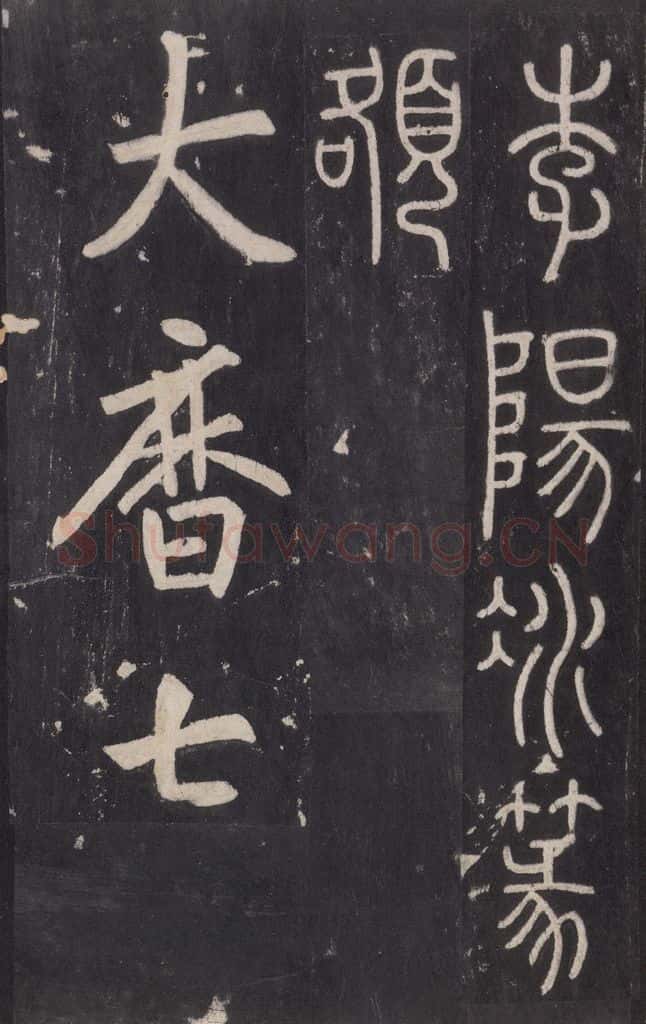 李陽冰篆
額
大曆七
Shufawang.CN